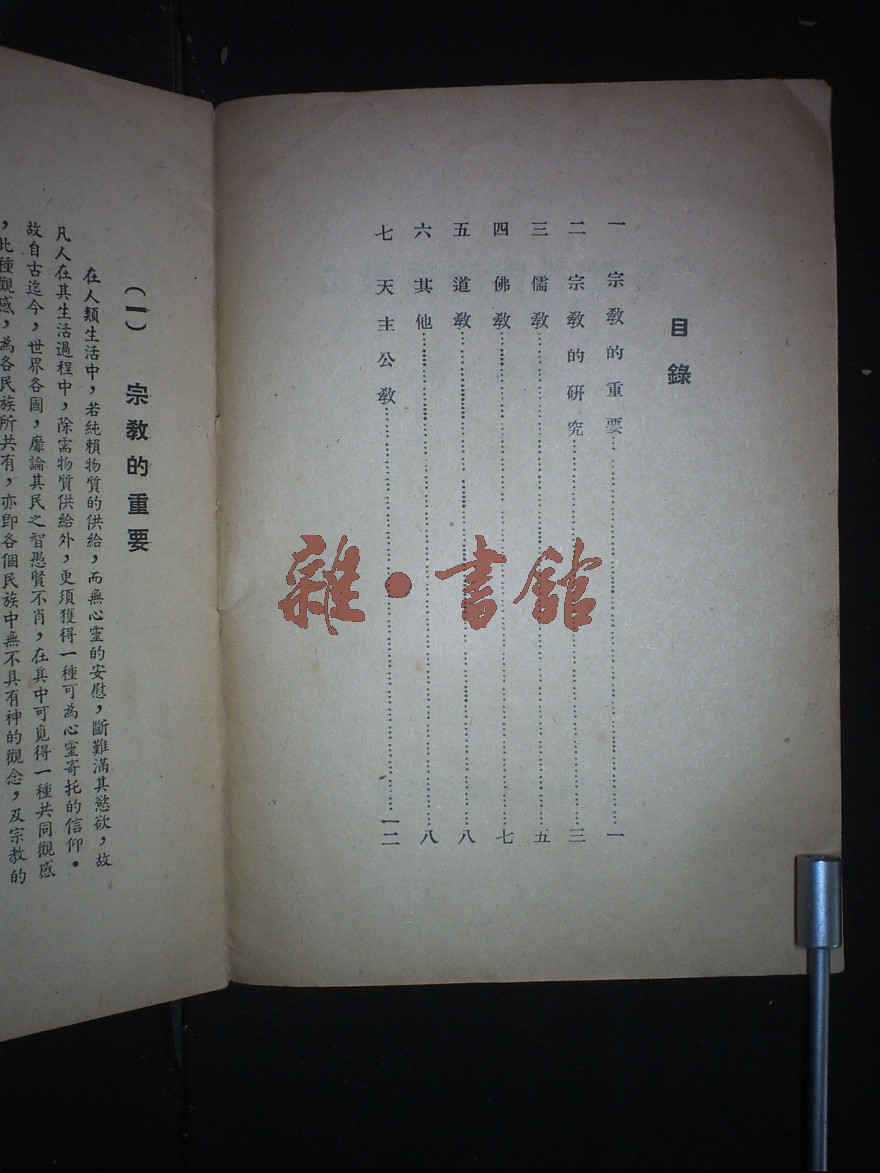 目錄
一 宗教的重要……一
二 宗教的研究……三
三 儒教……五
四 佛教……七
五 道教……八
六 其他……八
七 天主公教……一二
雜·書館
(一) 宗教的重要
在人類生活中，若純賴物質的供給，而無心靈的安慰，斷難滿其慾欲，故
凡人在其生活過程中，除需物質供給外，更須獲得一種可為心靈寄托的信仰。
故自古迄今，世界各國，靡論其民之智愚賢不肖，在其中可覓得一種共同觀感
，此種觀感，為各民族所共有，亦即各個民族中無不具有神的觀念，及宗教的